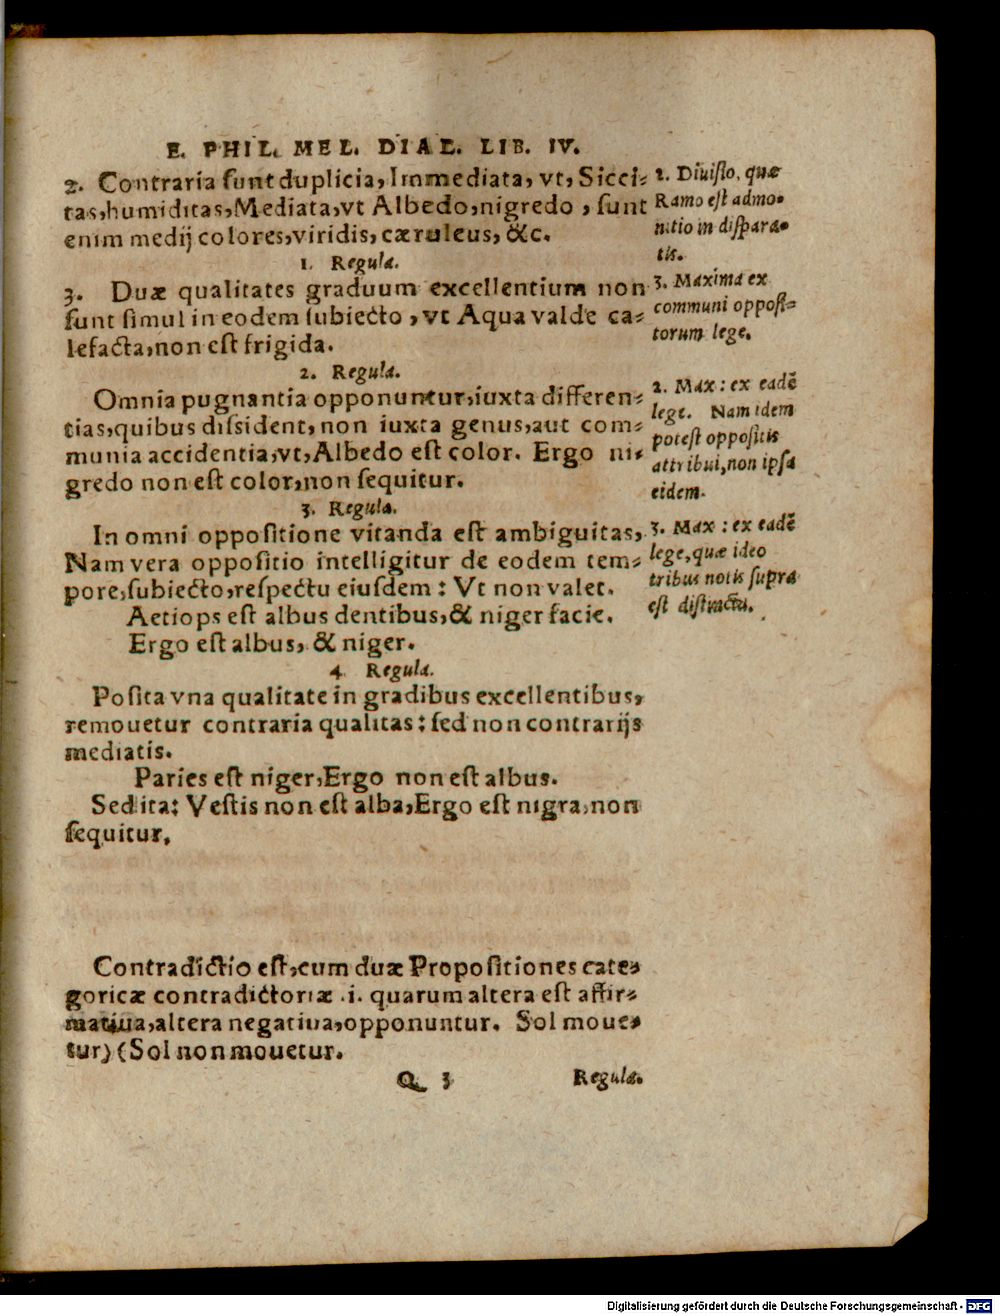 E. PHIL. MEL. DIAL. LIB. IV.
2. Contraria sunt duplicia, Immediata, vt, Sicci-
tas, humiditas, Mediata, vt Albedo, nigredo, sunt
enim medij colores, viridis, cæruleus, &c.
1. Regula.
3. Duæ qualitates graduum excellentium non
sunt simul in eodem subiecto, vt Aqua valde ca-
lefacta, non est frigida.
2. Regula.
Omnia pugnantia opponuntur, iuxta differen-
tias, quibus dissident, non iuxta genus, aut com-
munia accidentia, vt, Albedo est color. Ergo ni-
gredo non est color, non sequitur.
3. Regula.
In omni oppositione vitanda est ambiguitas,
Nam vera oppositio intelligitur de eodem tem-
pore, subiecto, respectu eiusdem: Vt non valet.
Aetiops est albus dentibus, & niger facie.
Ergo est albus, & niger.
4 Regula.
Posita vna qualitate in gradibus excellentibus,
remouetur contraria qualitas: sed non contrarijs
mediatis.
Paries est niger, Ergo non est albus.
Sed ita: Vestis non est alba, Ergo est nigra, non
sequitur,
Contradictio est, cum duæ Propositiones cate-
goricæ contradictoriæ .i. quarum altera est affir-
matiua, altera negatiua, opponuntur. Sol moue-
tur) (Sol non mouetur.
Q 3
Regula.
2. Diuisio, quæ
Ramo est admo-
nitio in dispara-
tis.
3. Maxima ex
communi opposi-
torum lege.
2. Max: ex eadē
lege. Nam idem
potest oppositis
attribui, non ipsa
eidem.
3. Max: ex eadē
lege, quæ ideo
tribus notis supra
est distincta.
Digitalisierung gefördert durch die Deutsche Forschungsgemeinschaft - DFG